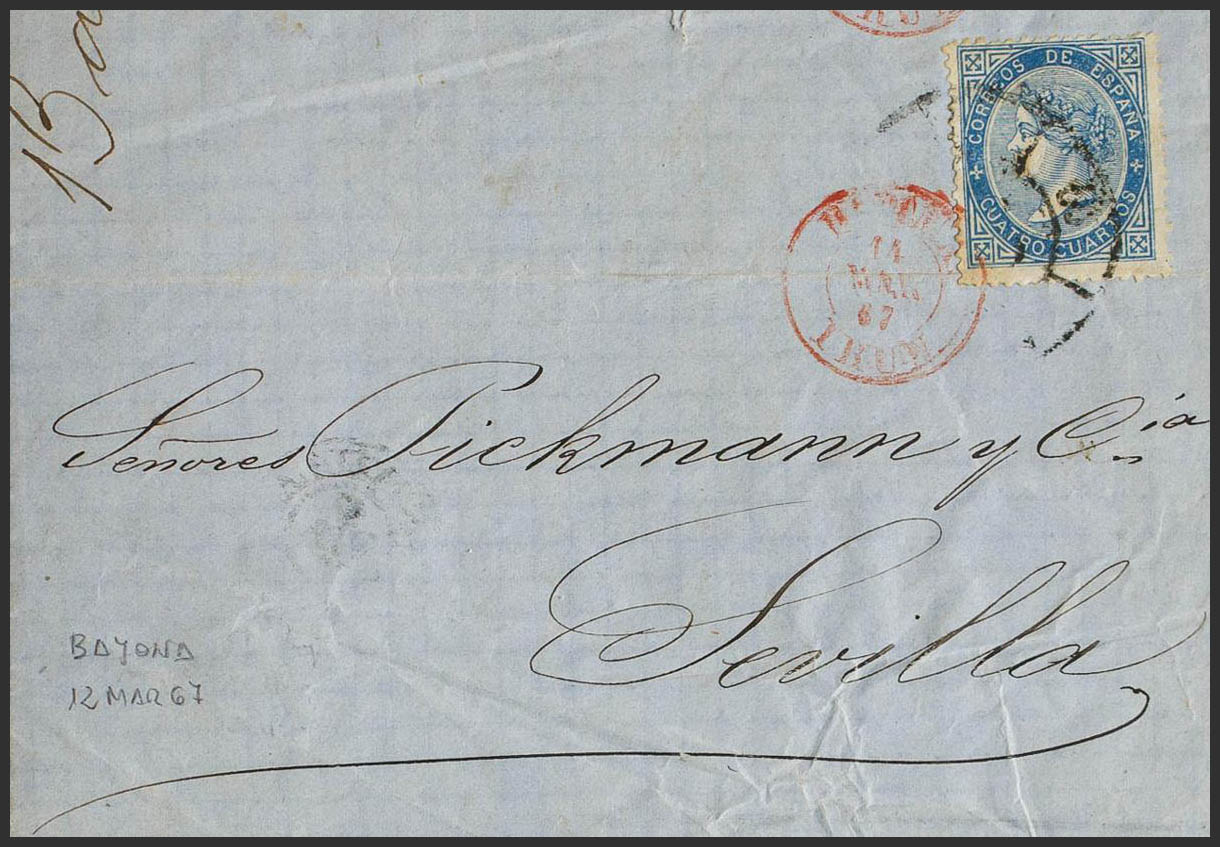 Ba
CORREOS DE ESPAÑA
CUATRO CUARTOS
MAR.
67
IRUN
Señores Pickmann y C.ia
Sevilla
BAYONA
12 MAR 67